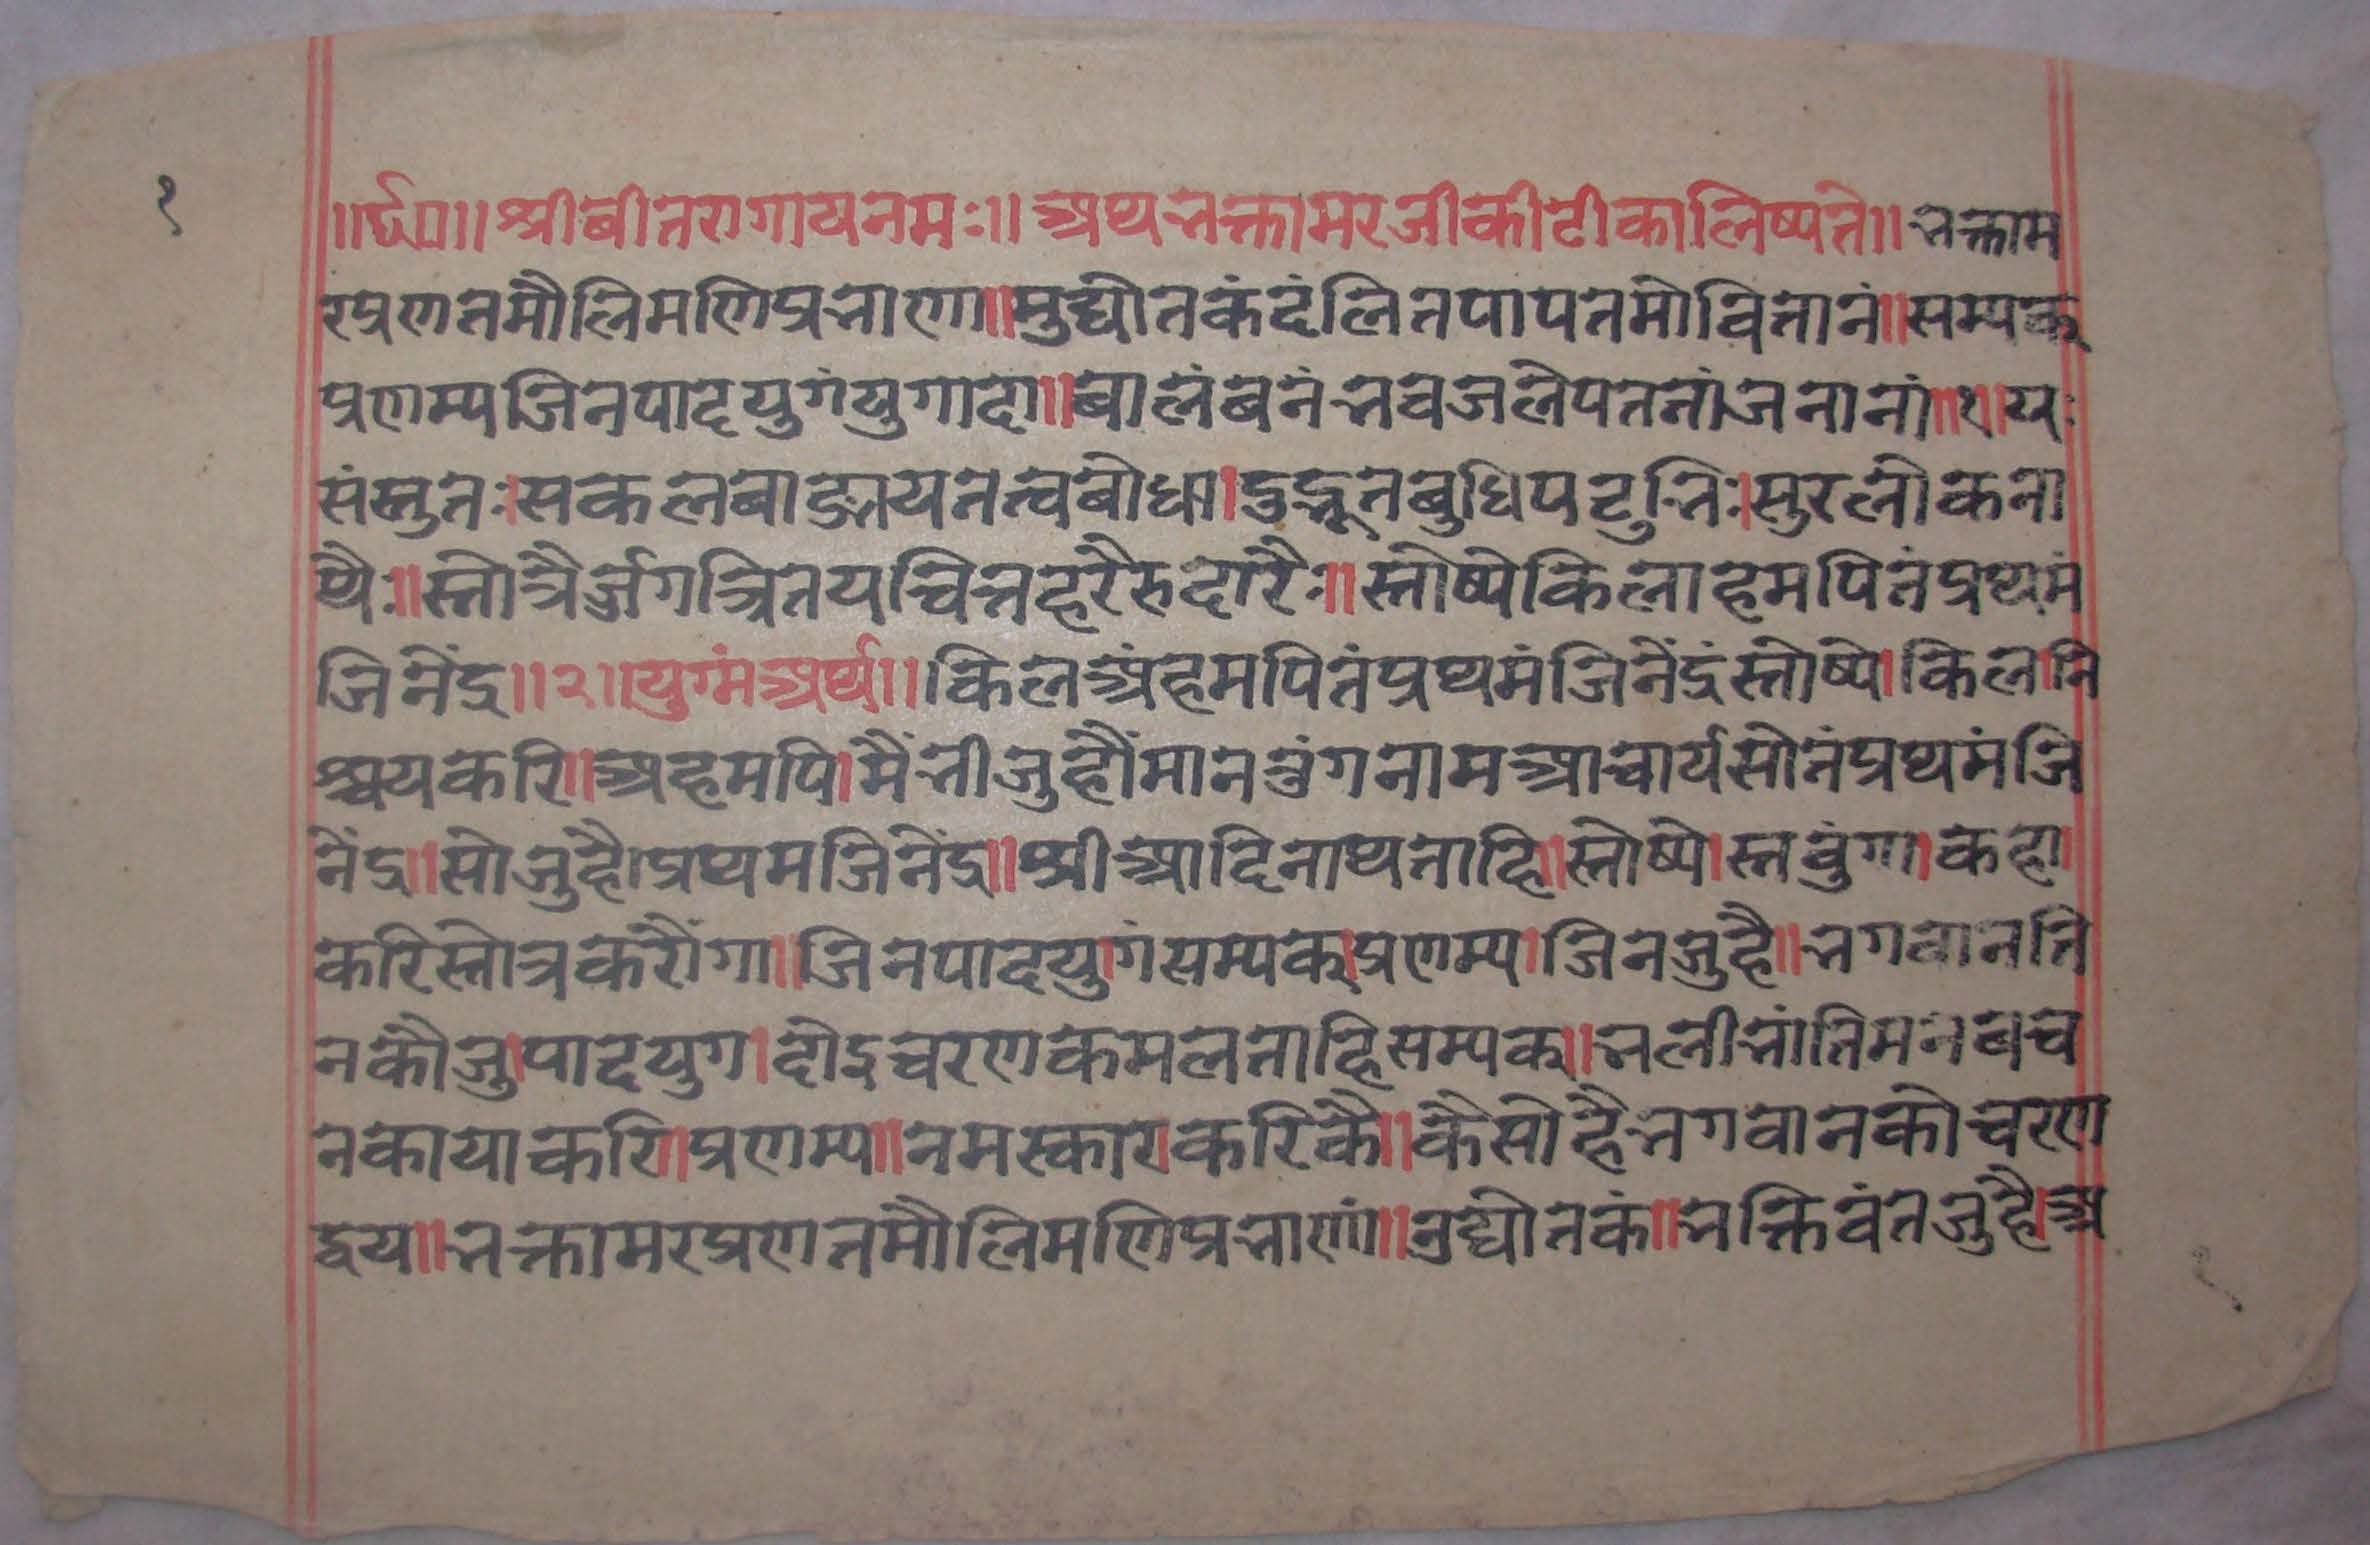 १
॥र्द्धण॥ श्रीबीतरागायनमः॥ अथभक्तामरजीकीटीकालिष्यते॥ भक्ताम
रप्रणतमौलिमणिप्रभाणा॥मुद्योतकंदंलितपापतमोवितानं॥सम्यक्
प्रणम्यजिनपादयुगंयुगादा॥बालंबनंभवजलेपततांजनानां॥१॥यः
संस्तुतः।सकलबाङ्मयतत्वबोधा।दुद्भूतबुधिपटुभिः।सुरलोकना
थैः॥स्तोत्रैर्जगत्रितयचित्तहरैरुदारैः॥स्तोष्येकिलाहमपितंप्रथमं
जिनेंद्र॥२॥युग्मंअर्थ॥किलअंहमपितंप्रथमंजिनेंद्रंस्तोष्ये।किल।नि
श्चयकरि॥अहमपि।मैंभीजुहौंमानतुंगनामआचार्यसोतंप्रथमंजि
नेंद्र॥सोजुहै।प्रथमजिनेंद्र॥श्रीआदिनाथताहि॥स्तोष्ये।स्तवुंगा।कहा।
करिस्तोत्रकरौंगा॥जिनपादयुगंसम्यक्।प्रणम्य।जिनजुहै॥भगवानति
नकौजु।पादयुग।दोइचरणकमलताहिसम्यक्॥भलीभांतिमनबच
नकायाकरि॥प्रणम्य॥नमस्कारकरिकै॥कैसोहैभगवानकोचरण
द्वय॥भक्तामरप्रणतमौलिमणिप्रभाणां॥नुद्योतकं॥भक्तिवंतजुहै।अ